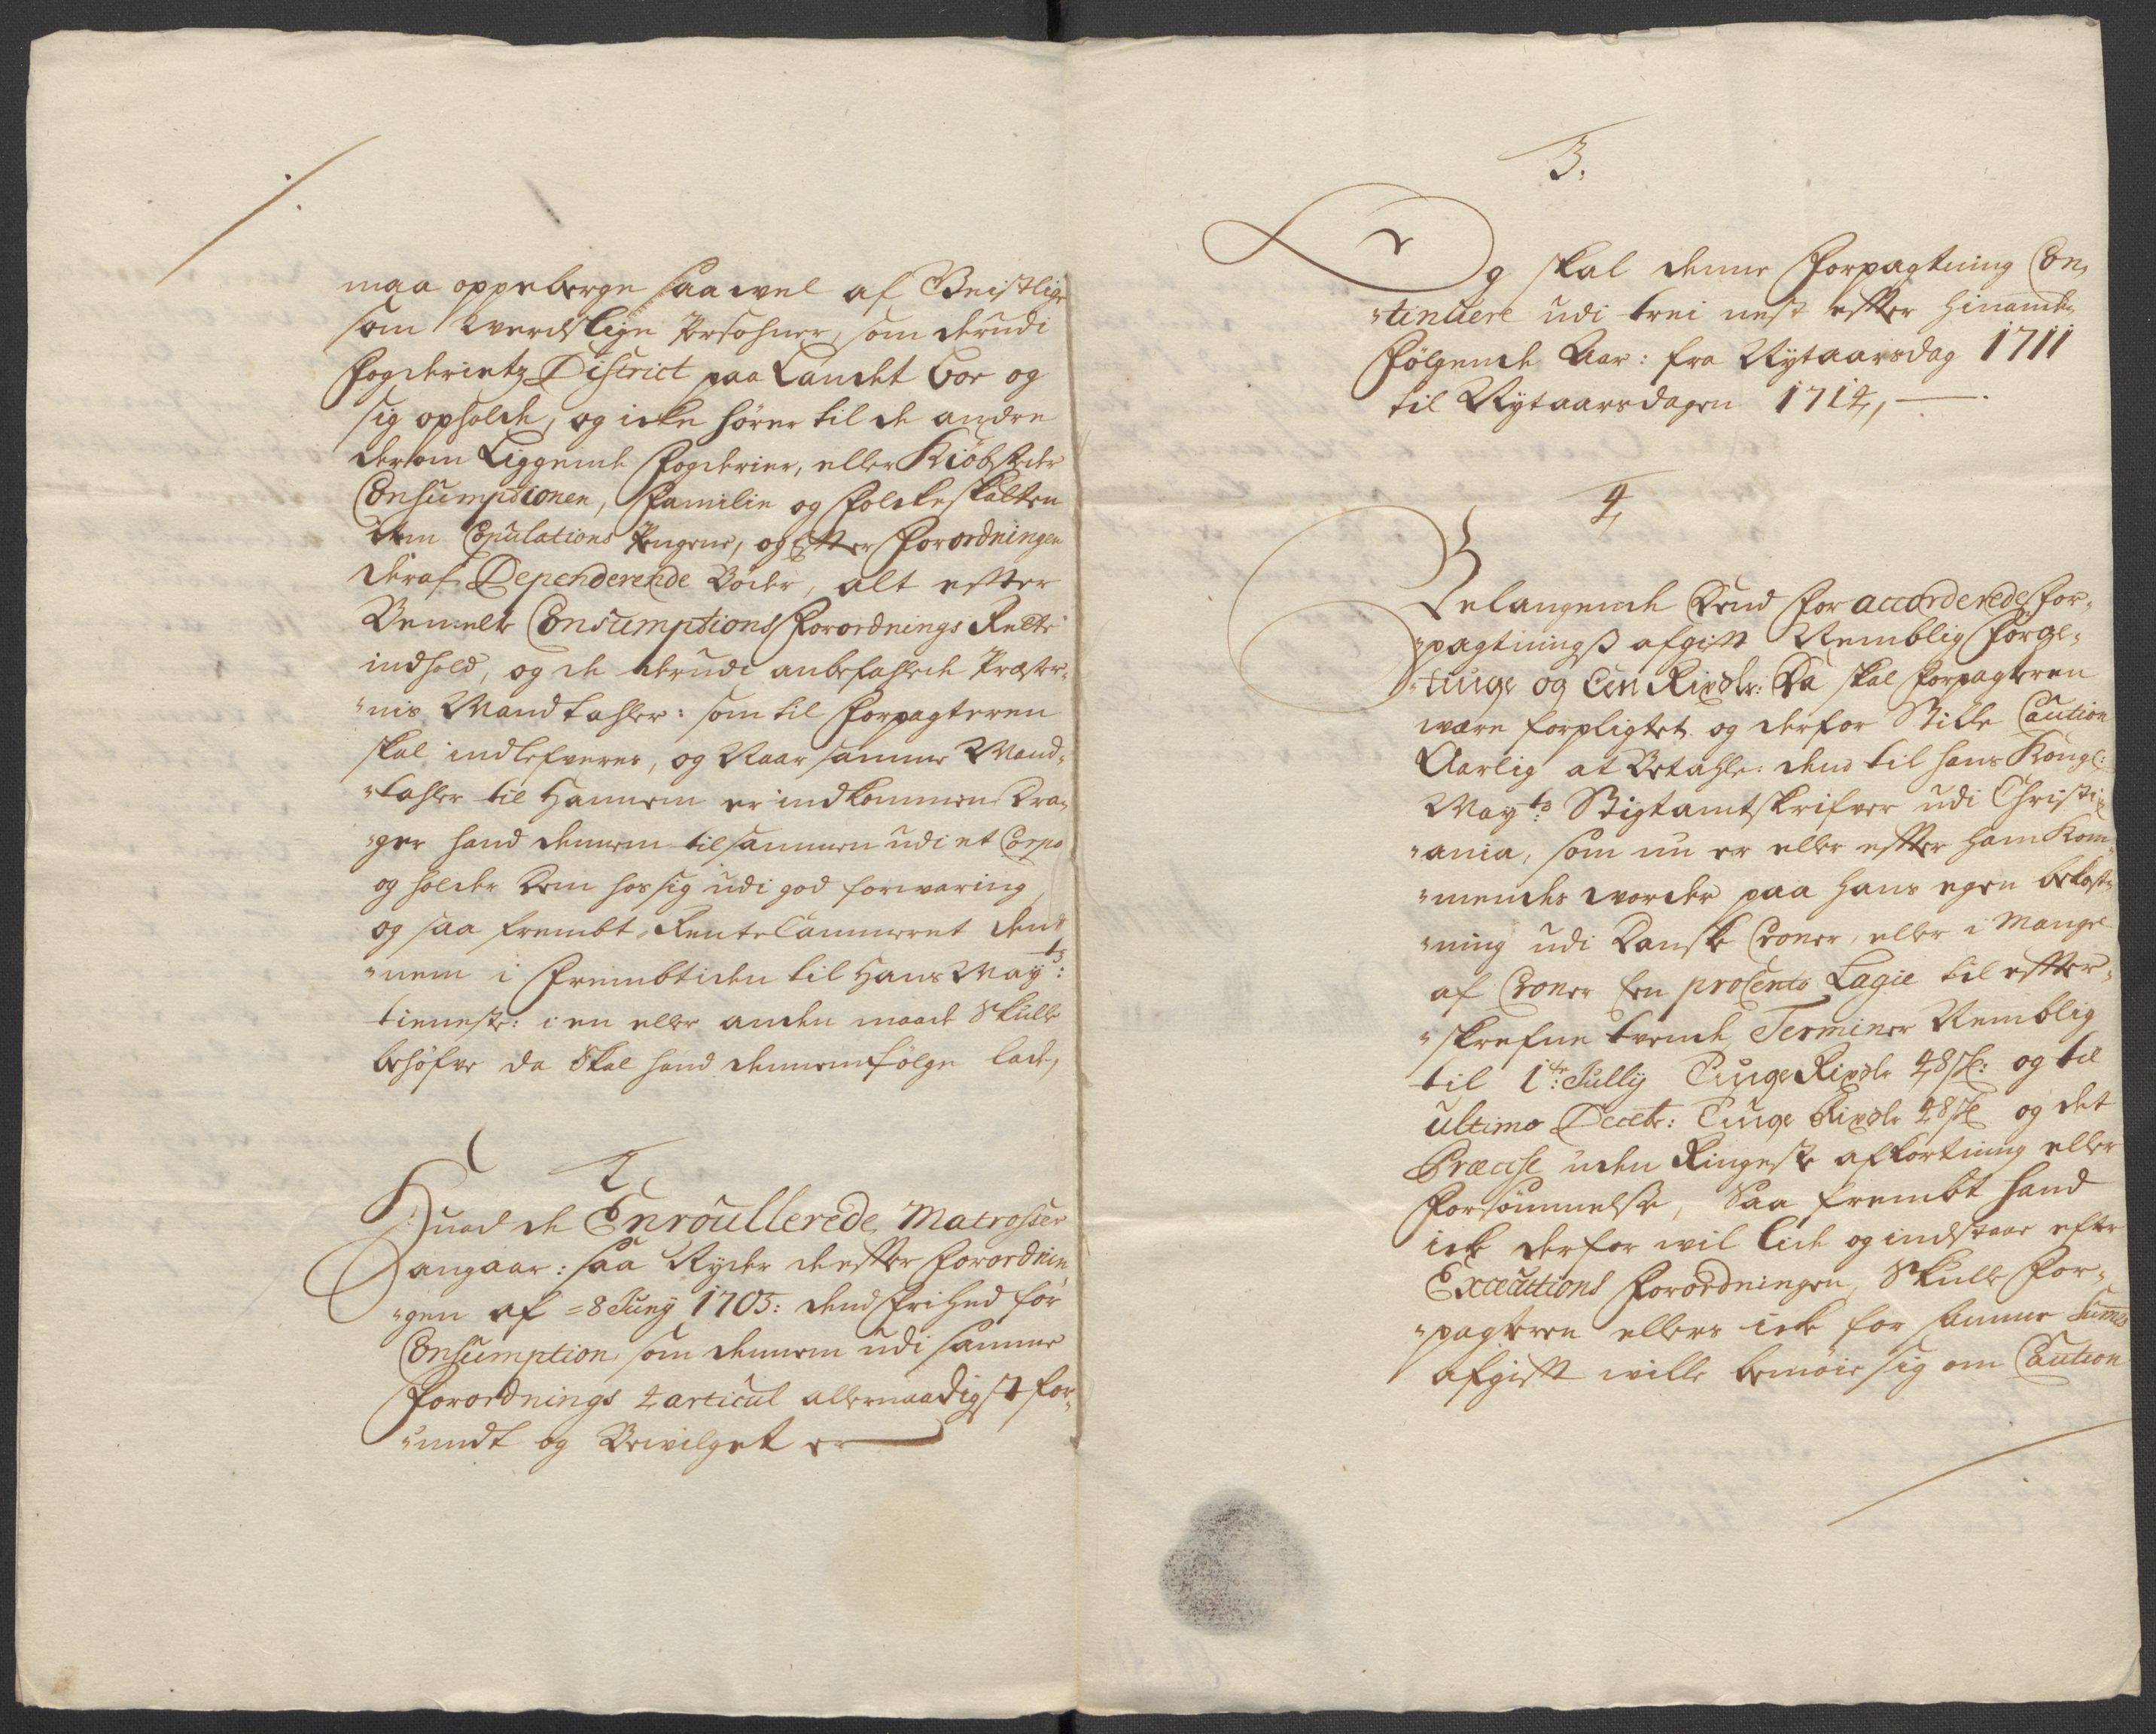 maa oppeberge saa vel af Geistlige
som Verdslige Persohner, som derudi
Fogderietz District paa Landet boe og
sig opholde, og icke hører til de andre
derom Liggende Fogderier, eller Kiöbsteder
Consumptionen, Familie og Folckeskatten
Dem Copulations Pengene, og Efter Forordningen
deraf Dependerende Bøder, alt efter
Bemelte Consumptions Forordnings Rette
indhold, og de derudi anbefahlede Præster¬
"nis Mandtahler: som til Forpagteren
skal indlefveres, og Naar samme Mand¬
"tahler til Hannem er indkommen Dra¬
"ger hand dennem tilsammen udi et Corpo
og holder Dem hos sig udi god forvaring,
og saa frembt Rente Cammeret den¬
"nem i Frembtiden til Hans Mayts:
tienneste: i en eller anden maade Skulle
behøfve da Skal hand dennem følge lade,
2,
Huad de Enroullerede Matrosser
angaar: saa Nyder de efter Forordnin
"gen af = 8 Juny 1705: dend Frihed for
Consumption, som dennem udi samme
Forordnings 4 articul allernaadigst for¬
"undt og Bevilget er
3.
Og skal denne Forpagtning Con¬
"tinuere udi trei nest efter hinanden
Følgende Aar: fra Nytaarsdag 1711
til Nytaarsdagen 1714,
4,
Belangende Dend For accorderede For¬
"pagtningß afgift Nemblig Førge¬
"tiuge og Een Rixdlr: Da skal Forpagteren
være forpligtet og derfor Stille Caution
Aarlig at Betahle: dend til hans Kongl:
Mayts: Stigtamtskrifver udi Christi¬
"ania, som nu er eller efter ham Kom¬
"mendes vorder paa hans egen bekost¬
"ning udi Danske Croner, eller i Mangel
af Croner Een procento Lagie til efter¬
"skrefne tvende Terminer Nemblig
til 1te: Jullij Tiuge Rixdlr 48 s: og til
ultimo Decebr: Tiuge Rixdlr 48 s og det
Præcise uden Ringeste afkortning eller
Forsømmelse, Saa frembt hand
icke derfor vil lide og indstaae efter
Executions Forordningen, Skulle For¬
"pagteren ellers icke for samme Summa
afgift ville bemøie sig om Caution